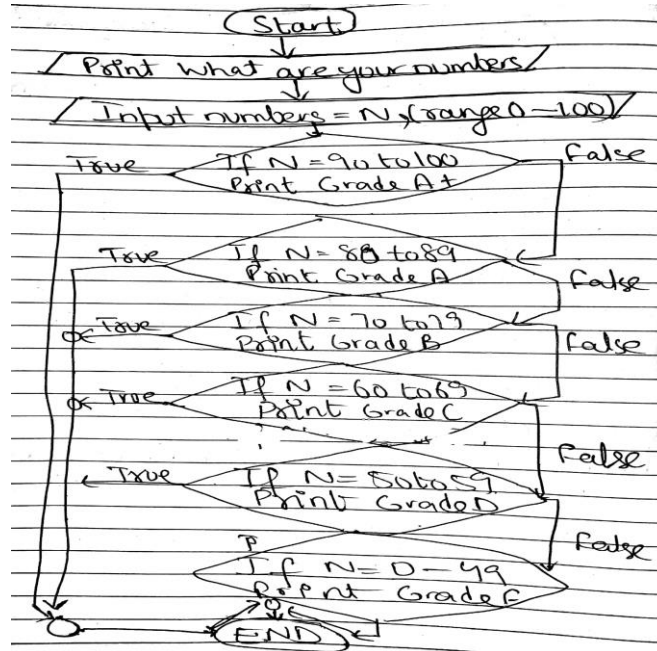 Start
Print What are your numbers
Input numbers = N, (range 0-100)
True
If N = 90 to 100
Print Grade A+
False
True
If N = 80 to 89
Print Grade A
False
True
If N = 70 to 79
Print Grade B
False
True
If N = 60 to 69
Print Grade C
False
True
If N = 50 to 59
Print Grade D
False
P
If N = 0 - 49
Print Grade F
END